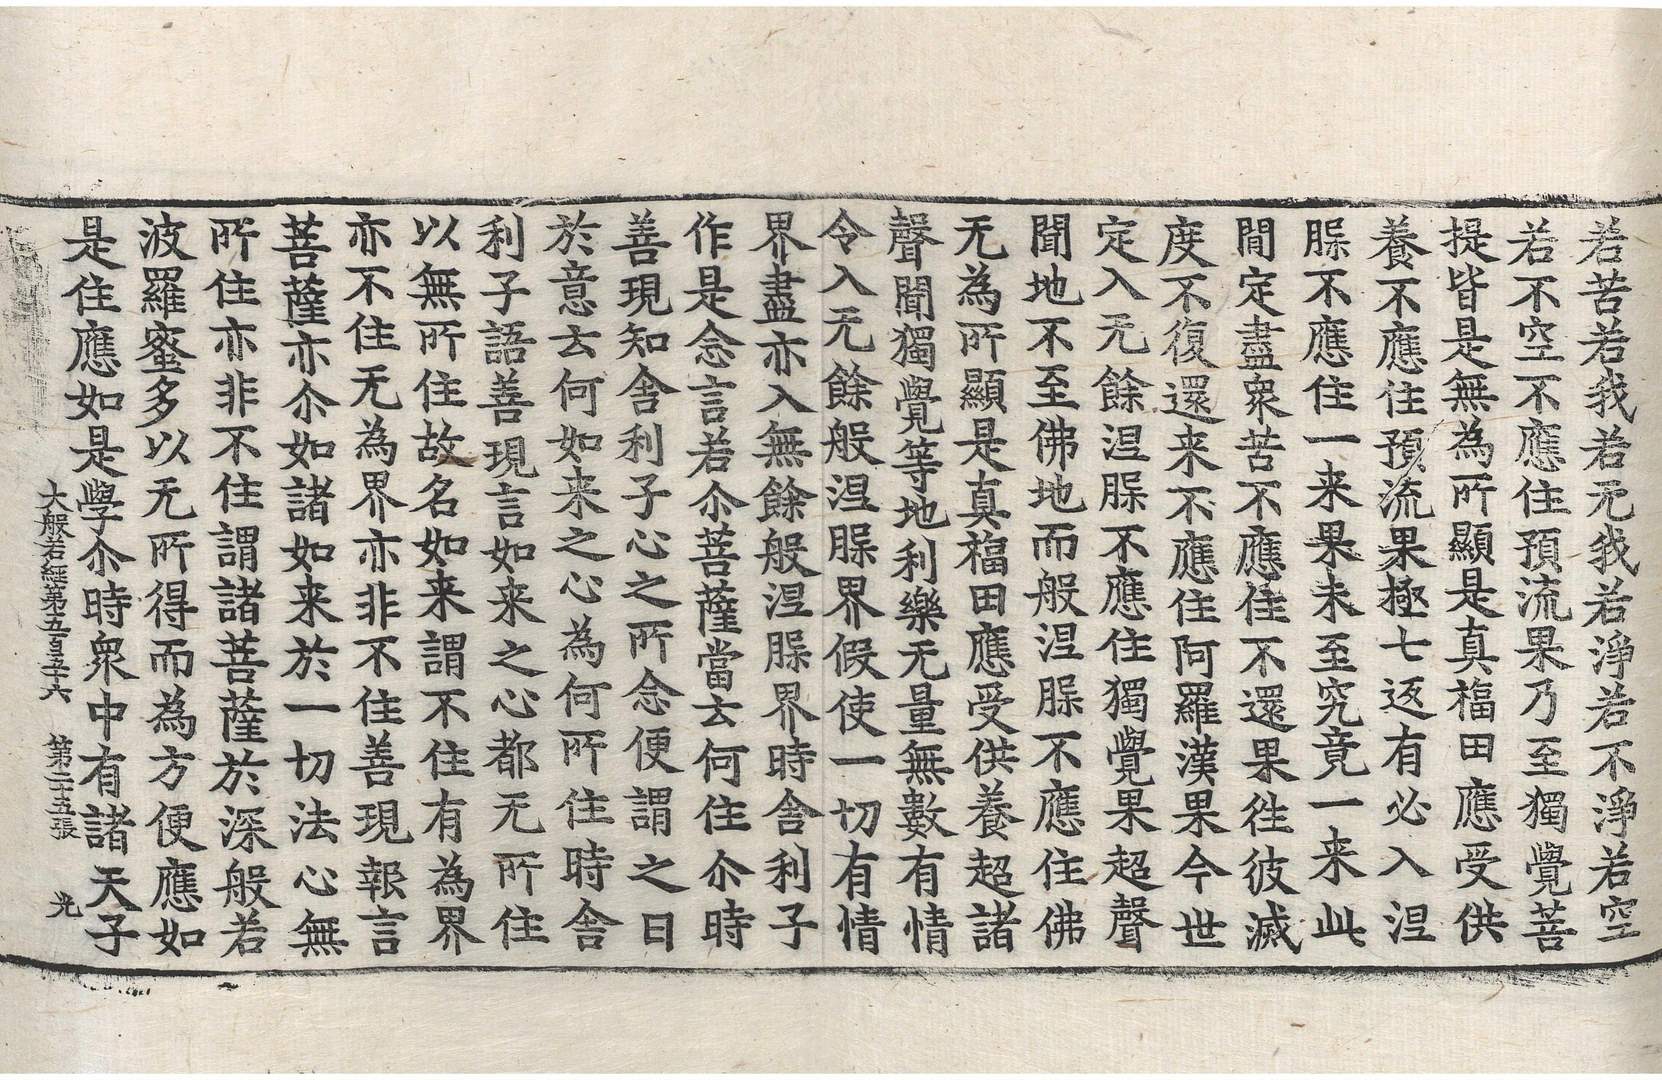 若苦若我若无我若淨若不淨若空
若不空不應住預流果乃至獨覺菩
提皆是無為所顯是真福田應受供
養不應住預流果極七返有必入涅
槃不應住一来果未至究竟一来此
間定盡衆苦不應住不還果往彼滅
度不復還来不應住阿羅漢果今世
定入无餘涅槃不應住獨覺果超聲
聞地不至佛地而般涅槃不應住佛
无為所顯是真福田應受供養超諸
聲聞獨覺等地利樂无量無數有情
令入无餘般涅槃界假使一切有情
界盡亦入無餘般涅槃界時舍利子
作是念言若尒菩薩當去何住尒時
善現知舍利子心之所念便謂之曰
於意去何如来之心為何所住時舍
利子語善現言如来之心都无所住
以無所住故名如来謂不住有為界
亦不住无為界亦非不住善現報言
菩薩亦尒如諸如来於一切法心無
所住亦非不住謂諸菩薩於深般若
波羅蜜多以无所得而為方便應如
是住應如是學尒時衆中有諸天子
大般若經第五百五十六 第二十五張 光